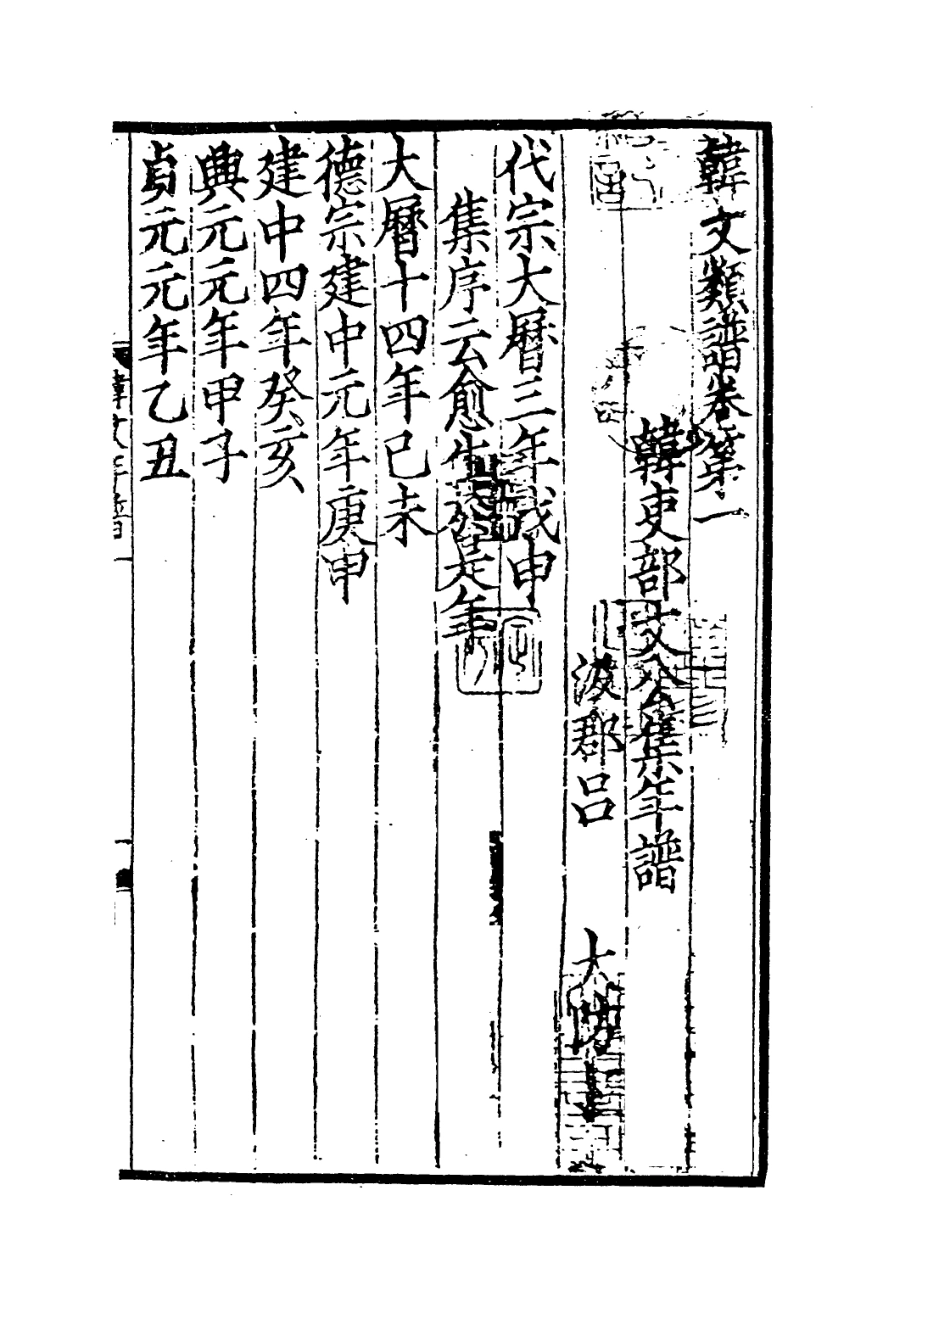 韓文類譜卷第一
韓吏部文公集年譜
汲郡呂　大防　
代宗大曆三年戊申
集序云愈生　是年
大曆十四年己未
德宗建中元年庚申
建中四年癸亥
興元元年甲子
貞元元年乙丑
韓文年譜一